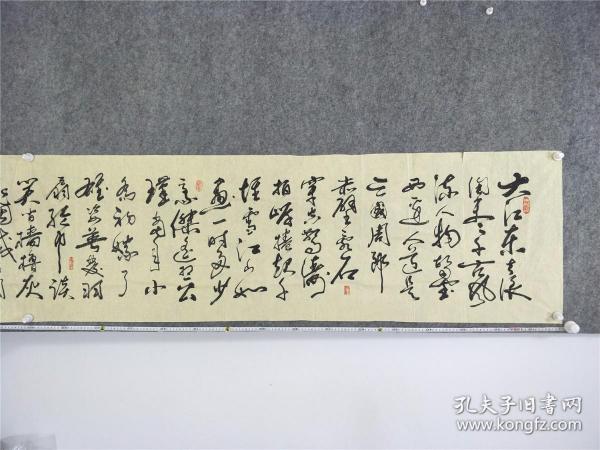 大江东去浪
淘尽千古风
流人物故垒
西边人道是
三國周郎
赤壁乱石
穿空惊涛
拍岸捲起千
堆雪江山如
画一时多少
豪傑遥想公
瑾当年小
乔初嫁了
雄姿英发羽
扇纶巾谈
笑间樯橹灰
孔夫子旧书网
www.kongfz.com